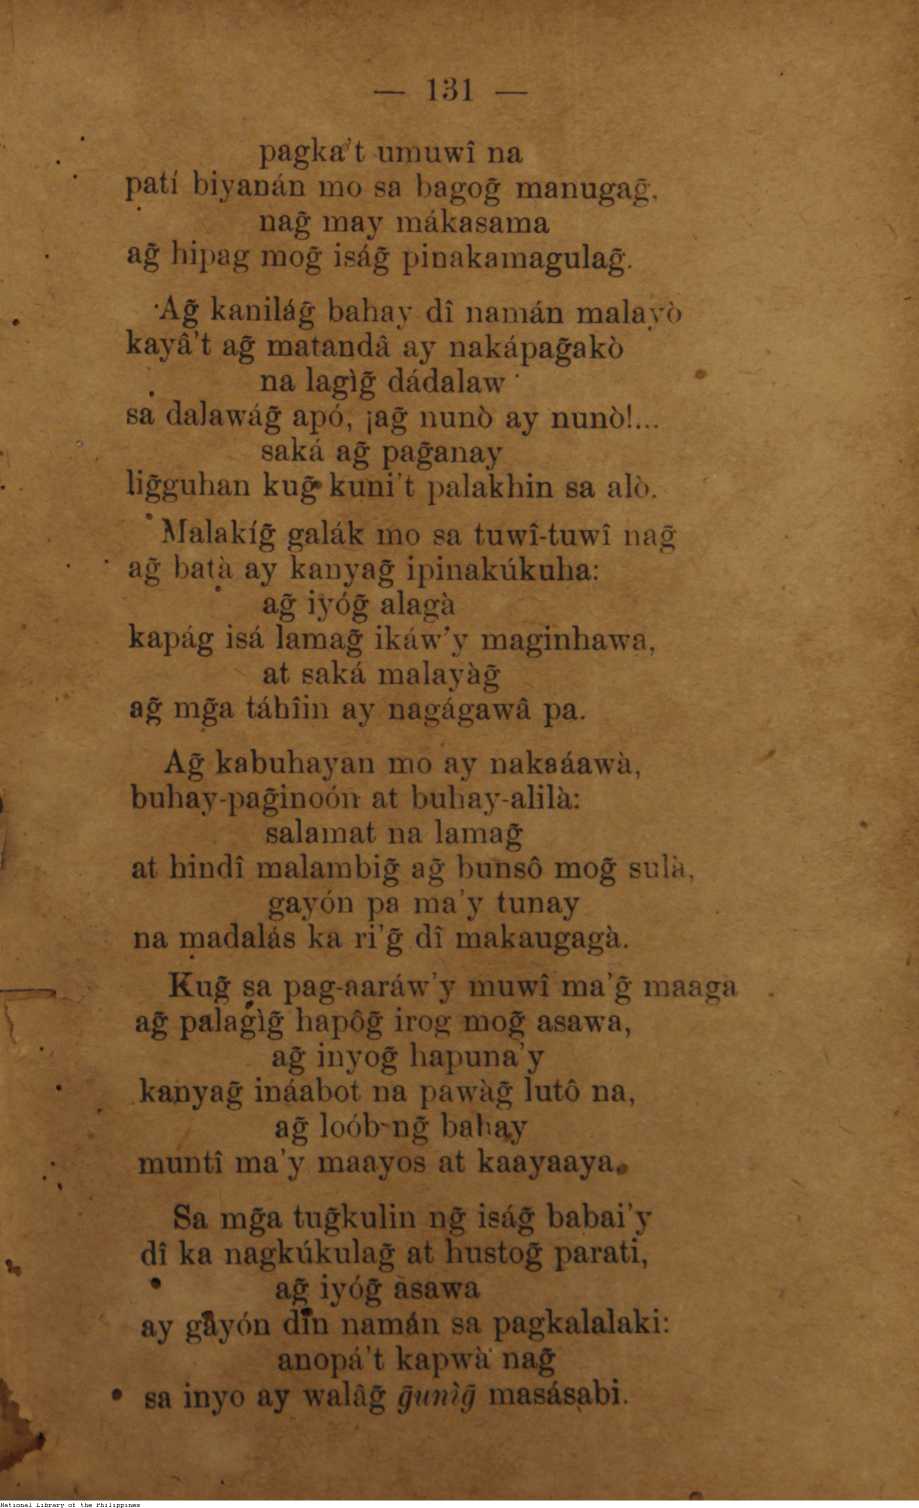 — 131 —
pagka't umuwî na
patí biyanán mo sa bagog̃ manugag̃,
nag̃ may mákasama
ag̃ hipag mog̃ iság̃ pinakamagulag̃.
Ag̃ kanilág̃ bahay dî namán malayò
kayâ't ag̃ matandâ ay nakápag̃akò
na lagìg̃ dádalaw
sa dalawág̃ apó, ¡ag̃ nunò ay nunò!...
saká ag̃ pag̃anay
lig̃guhan kug̃ kuni't palakhin sa alò.
Malakíg̃ galák mo sa tuwî-tuwî nag̃
ag̃ batà ay kanyag̃ ipinakúkuha:
ag̃ iyóg̃ alagà
kapág isá lamag̃ ikáw'y maginhawa,
at saká malayàg̃
ag̃ mg̃a táhîin ay nagágawâ pa.
Ag̃ kabuhayan mo ay naksáawà,
buhay-pag̃inoón at buhay-alilà:
salamat na lamag̃
at hindî malambig̃ ag̃ bunsô mog̃ sulà,
gayón pa ma'y tunay
na madalás ka ri'g̃ dî makaugagà.
Kug̃ sa pag-aaráw'y muwî ma'g̃ maaga
ag̃ palagìg̃ hapôg̃ irog mog̃ asawa,
ag̃ inyog̃ hapuna'y
kanyag̃ ináabot na pawàg̃ lutô na,
ag̃ loób-ng̃ bahay
muntî ma'y maayos at kaayaaya.
Sa mg̃a tug̃kulin ng̃ iság̃ babai'y
dî ka nagkúkulag̃ at hustog̃ parati,
ag̃ iyóg̃ asawa
ay gayón din namán sa pagkalalaki:
anopá't kapwà nag̃
sa inyo ay walâg̃ g̃unìg̃ masásabi.
National Library of the Philippines